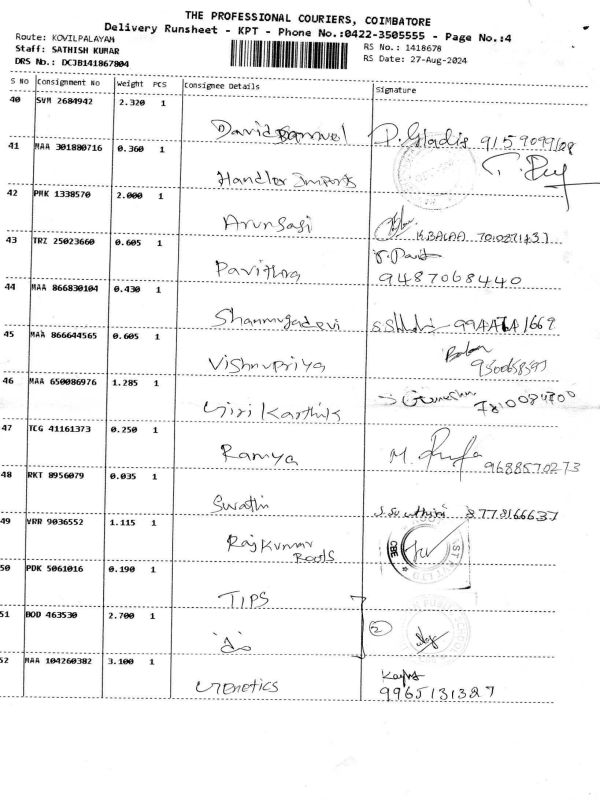 THE PROFESSIONAL COURIERS, COIMBATORE
Delivery Runsheet - KPT - Phone No.:0422-3505555 - Page No.:4
Route: KOVILPALAYAM
Staff: SATHISH KUMAR
DRS No.: DCJB141867804
RS No.: 1418678
RS Date: 27-Aug-2024
S NO Consignment No Weight PCS Consignee Details Signature
40 SVM 2684942 2.320 1
David Samuel P. Gladis
41 MAA 301880716 0.360 1
Handler Imports
42 PMK 1338570 2.000 1
Arunsasi
43 TRZ 25023660 0.605 1
Pavithra 9487068440
44 MAA 866830104 0.430 1
Shanmugadevi
45 MAA 866644565 0.605 1
Vishnupriya
46 MAA 650086976 1.285 1
Giri Karthik
47 TCG 41161373 0.250 1
Ramya M. 9688570273
48 RKT 8956079 0.035 1
Swathi 8778166637
49 VRR 9036552 1.115 1
Rajkumar
Roots
CBE
50 PDK 5061016 0.190 1
TIPS
51 BOD 463530 2.700 1
do 2
52 MAA 104260382 3.100 1
Genetics 9965131327